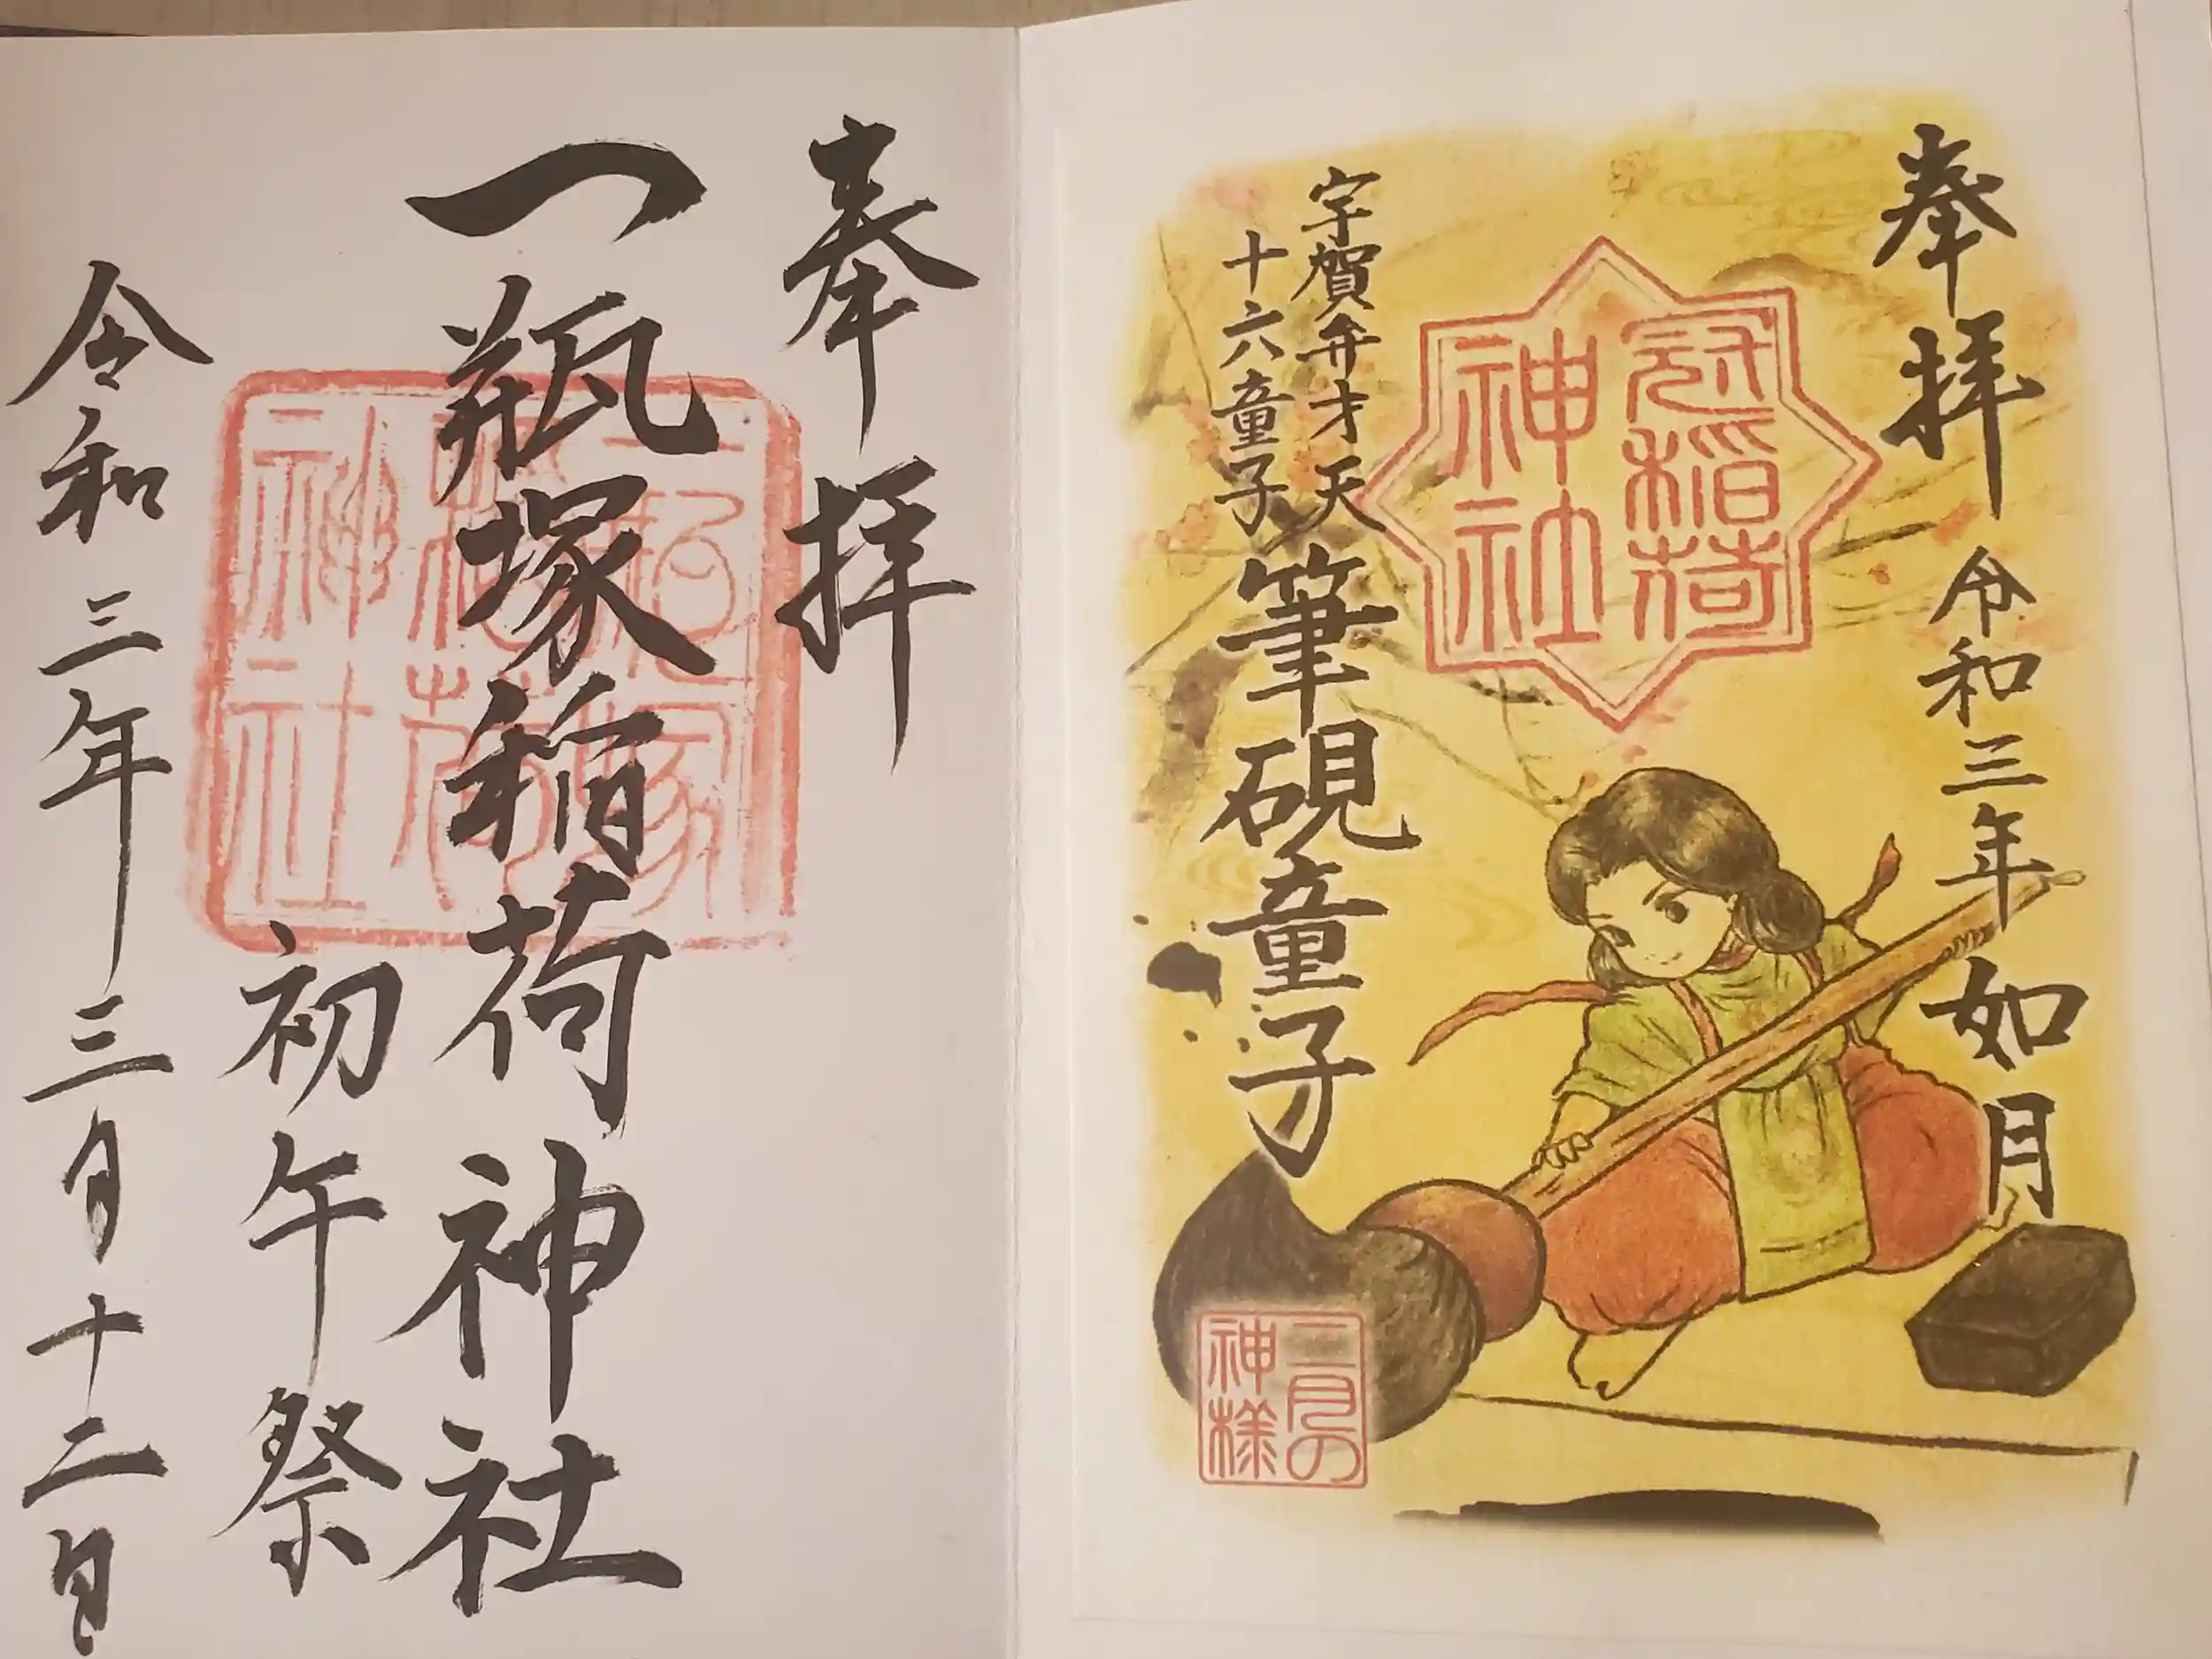 奉拝 令和三年 如月
冠稲荷
神社
宇賀弁才天
十六童子
筆硯童子
二月の
神様
奉拝
一瓶塚稲荷神社
初午祭
令和三年三月十二日
一瓶塚
稲荷
神社